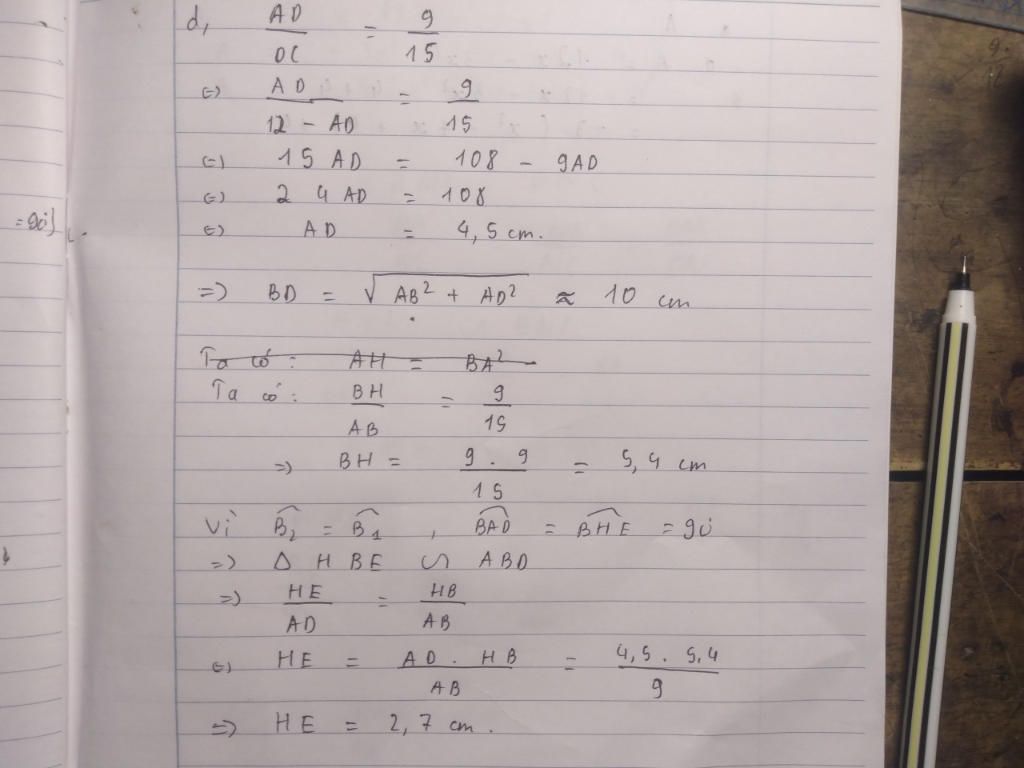 d, AD/DC = 9/15
(=) AD/12 - AD = 9/15
(=) 15 AD = 108 - 9AD
(=) 24 AD = 108
(=) AD = 4,5 cm.
=> BD = √AB² + AD² ≈ 10 cm
Ta có: AH = BA²
Ta có: BH/AB = 9/15
=> BH = 9 . 9/15 = 5,4 cm
Vì B̂₂ = B̂₁ , BAD = BHE = 90°
=> Δ HBE ∽ ABD
=> HE/AD = HB/AB
(=) HE = AD . HB/AB = 4,5 . 5,4/9
=> HE = 2,7 cm.